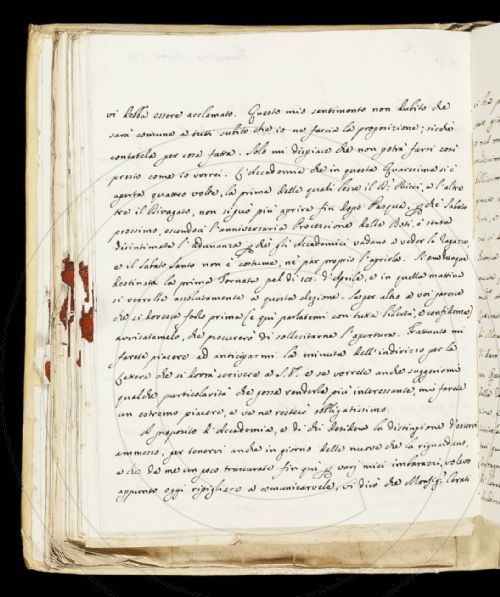 vi debba essere acclamato. Questo mio sentimento non dubito che
sarà comune a tutti subito che io ne faccia la proposizione; sicchè
contatela per cosa fatta. Solo mi dispiace che non potrà farsi così
presto come io vorrei. L'Accademia che in questa Quaresima si è
aperta quattro volte, la prima delle quali lesse il Ricci, e l'altre
tre il Rivagato, non si può più aprire fin dopo Pasqua, pchè Sabato
prossimo, essendoci l'anniversaria Processione delle Doti, è stata
disintimata l'Adunanza pchè gli Accademici vadano a veder le Ragazze,
e il Sabato Santo non è costume, nè par proprio l'aprirla. Si è dunque
destinata la prima Tornata pel dì d'Aprile, e in quella mattina
si verrebbe assolutamente a questa elezione. Se per altro a voi paresse
che si dovesse farlo prima (e qui parlatemi con tutta libertà, e confidenza)
avvisatemelo, che procurerò di sollecitarne l'apertura. Frattanto mi
farete piacere ad anticiparmi la minuta dell'indirizzo per la
Lettera che si dovrà scrivere a e se vorrete anche suggerirmi
qualche particolarità che possa renderla più interessante, mi farete
un estremo piacere, e ve ne resterò obbligatissimo.
A proposito d'Accademia, e di chi desidera la distinzione d'esservi
ammesso, per tenervi anche in giorno delle nuove che la riguardano,
e che da me un poco trascurate fin qui p varj miei imbarazzi, volevo
appunto oggi ripigliare a comunicarvele, vi dirò che Monsig.